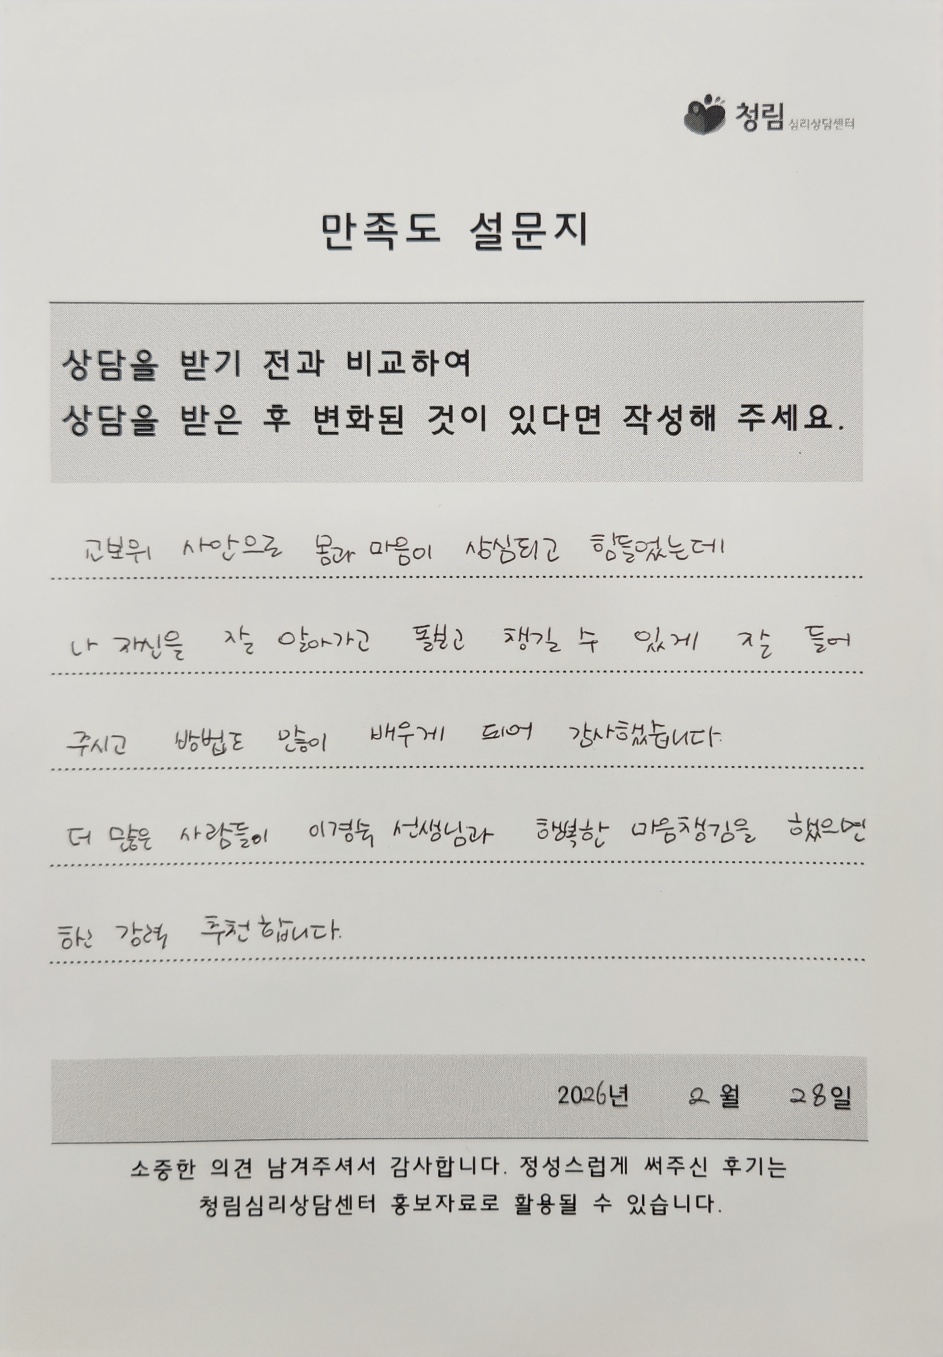 청림 심리상담센터
만족도 설문지
상담을 받기 전과 비교하여
상담을 받은 후 변화된 것이 있다면 작성해 주세요.
교보위 사안으로 몸과 마음이 상심되고 힘들었는데
나 자신을 잘 알아가고 돌보고 챙길 수 있게 잘 들어
주시고 방법도 많이 배우게 되어 감사했습니다.
더 많은 사람들이 이경숙 선생님과 행복한 마음챙김을 했으면
강력 추천합니다.
2026년 2월 28일
소중한 의견 남겨주셔서 감사합니다. 정성스럽게 써주신 후기는
청림심리상담센터 홍보자료로 활용될 수 있습니다.